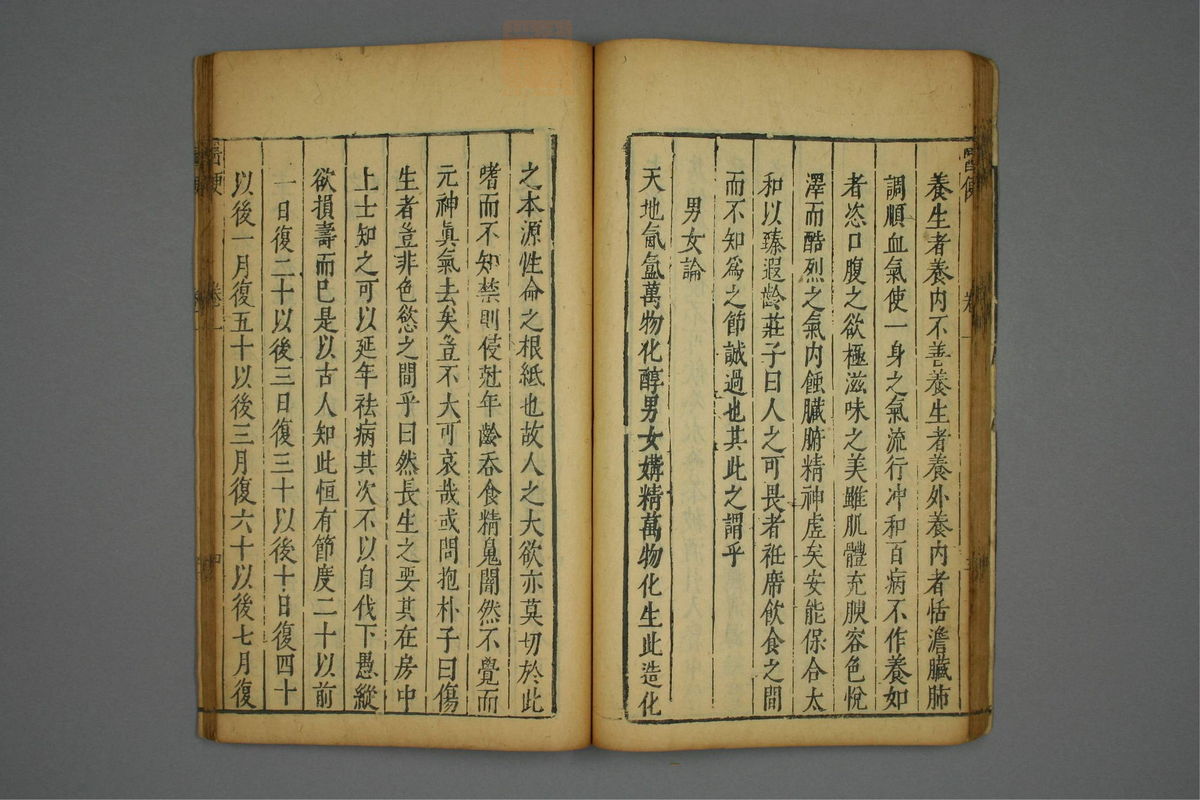 養生者養內不善養生者養外養內者恬澹臟肺
調順血氣使一身之氣流行冲和百病不作養如
者恣口腹之欲極滋味之美雖肌體充腴容色悅
澤而酷烈之氣內蝕臟腑精神虛矣安能保合太
和以臻遐齡莊子曰人之可畏者衽席飲食之間
而不知爲之節誠過也其此之謂乎
男女論
天地氤氳萬物化醇男女媾精萬物化生此造化
之本源性命之根紙也故人之大欲亦莫切於此
嗜而不知禁則侵尅年齡吞食精魂闇然不覺而
元神眞氣去矣豈不大可哀哉或問抱朴子曰傷
生者豈非色慾之間乎曰然長生之要其在房中
上士知之可以延年袪病其次不以自伐下愚縱
欲損壽而已是以古人知此恒有節度二十以前
一日復二十以後三日復三十以後十日復四十
以後一月復五十以後三月復六十以後七月復